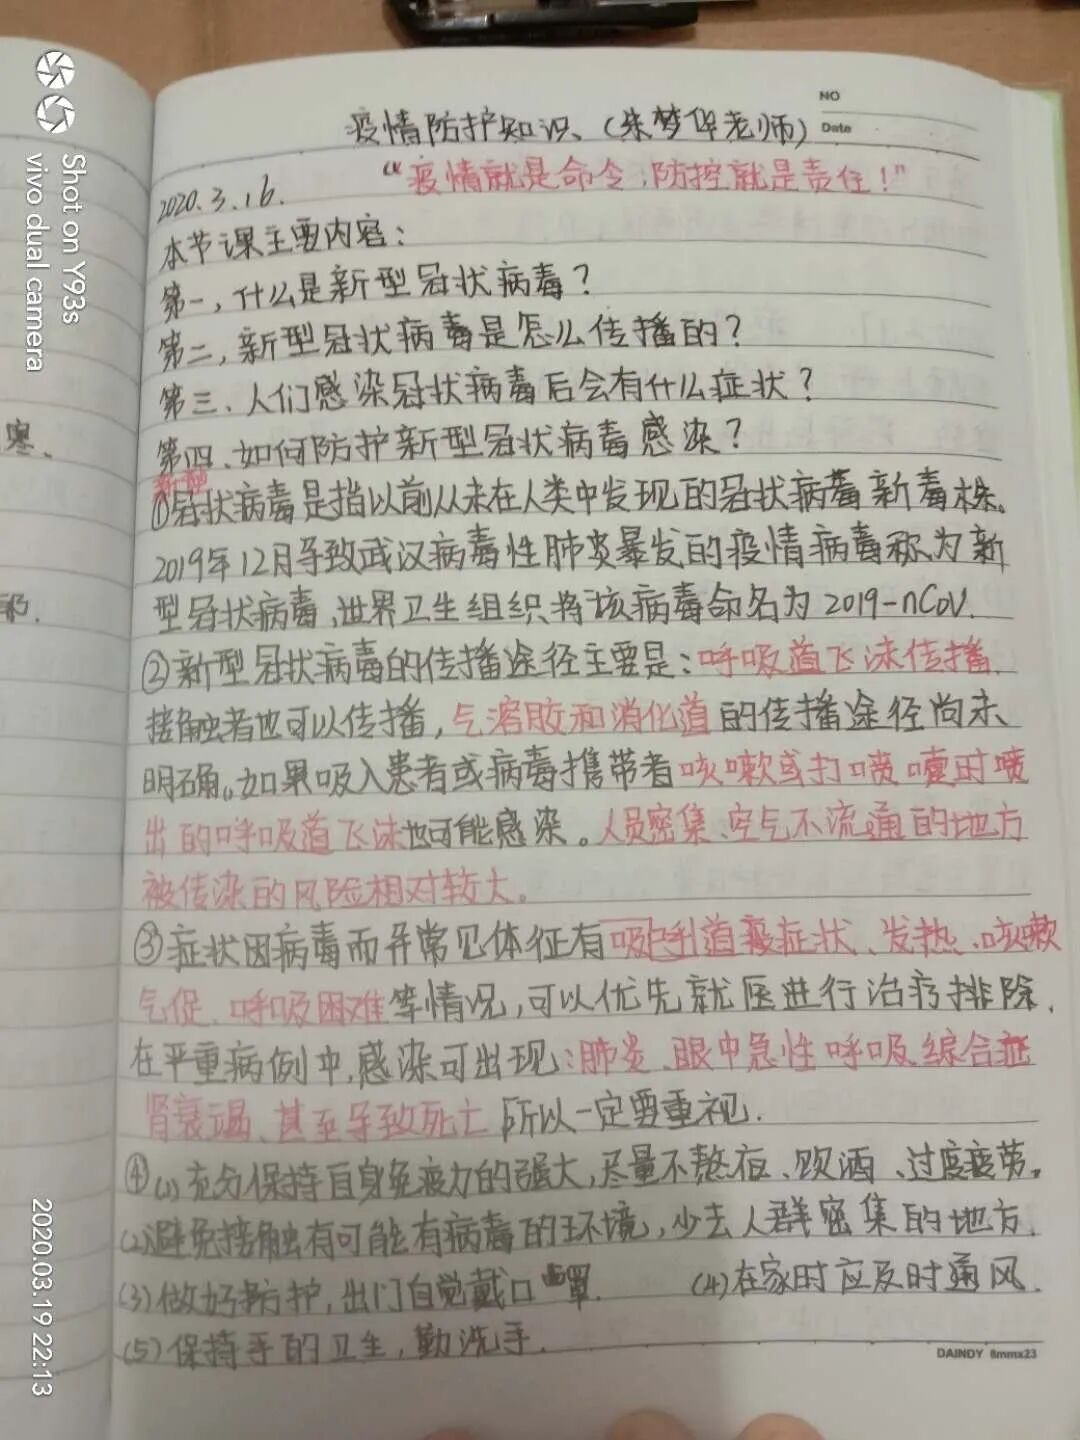 NO
疫情防护知识、(朱梦华老师)
Date
"疫情就是命令,防控就是责任!"
2020.3.16.
本节课主要内容:
第一,什么是新型冠状病毒?
第二,新型冠状病毒是怎么传播的?
第三、人们感染冠状病毒后会有什么症状?
第四、如何防护新型冠状病毒感染?
新型
①冠状病毒是指以前从未在人类中发现的冠状病毒新毒株。
2019年12月导致武汉病毒性肺炎暴发的疫情病毒称为新
型冠状病毒,世界卫生组织将该病毒命名为2019-nCoV.
②新型冠状病毒的传播途径主要是:呼吸道飞沫传播.
接触者也可以传播,气溶胶和消化道的传播途径尚未
明确。如果吸入患者或病毒携带者咳嗽或打喷嚏时喷
出的呼吸道飞沫也可能感染。人员密集、空气不流通的地方
被传染的风险相对较大。
③症状因病毒而异常见体征有呼吸道症状、发热、咳嗽
气促、呼吸困难等情况,可以优先就医进行治疗排除.
在严重病例中,感染可出现:肺炎、眼中急性呼吸综合症
肾衰竭、甚至导致死亡所以一定要重视.
④(1)充分保持自身免疫力的强大,尽量不熬夜、饮酒、过度疲劳。
(2)避免接触有可能有病毒的环境,少去人群密集的地方.
(3)做好防护,出门自觉戴口罩. (4)在家时应及时通风.
(5)保持手的卫生,勤洗手.
DAINDY 8mmx23
寒、
Shot on Y93s
vivo dual camera
2020.03.19 22:13